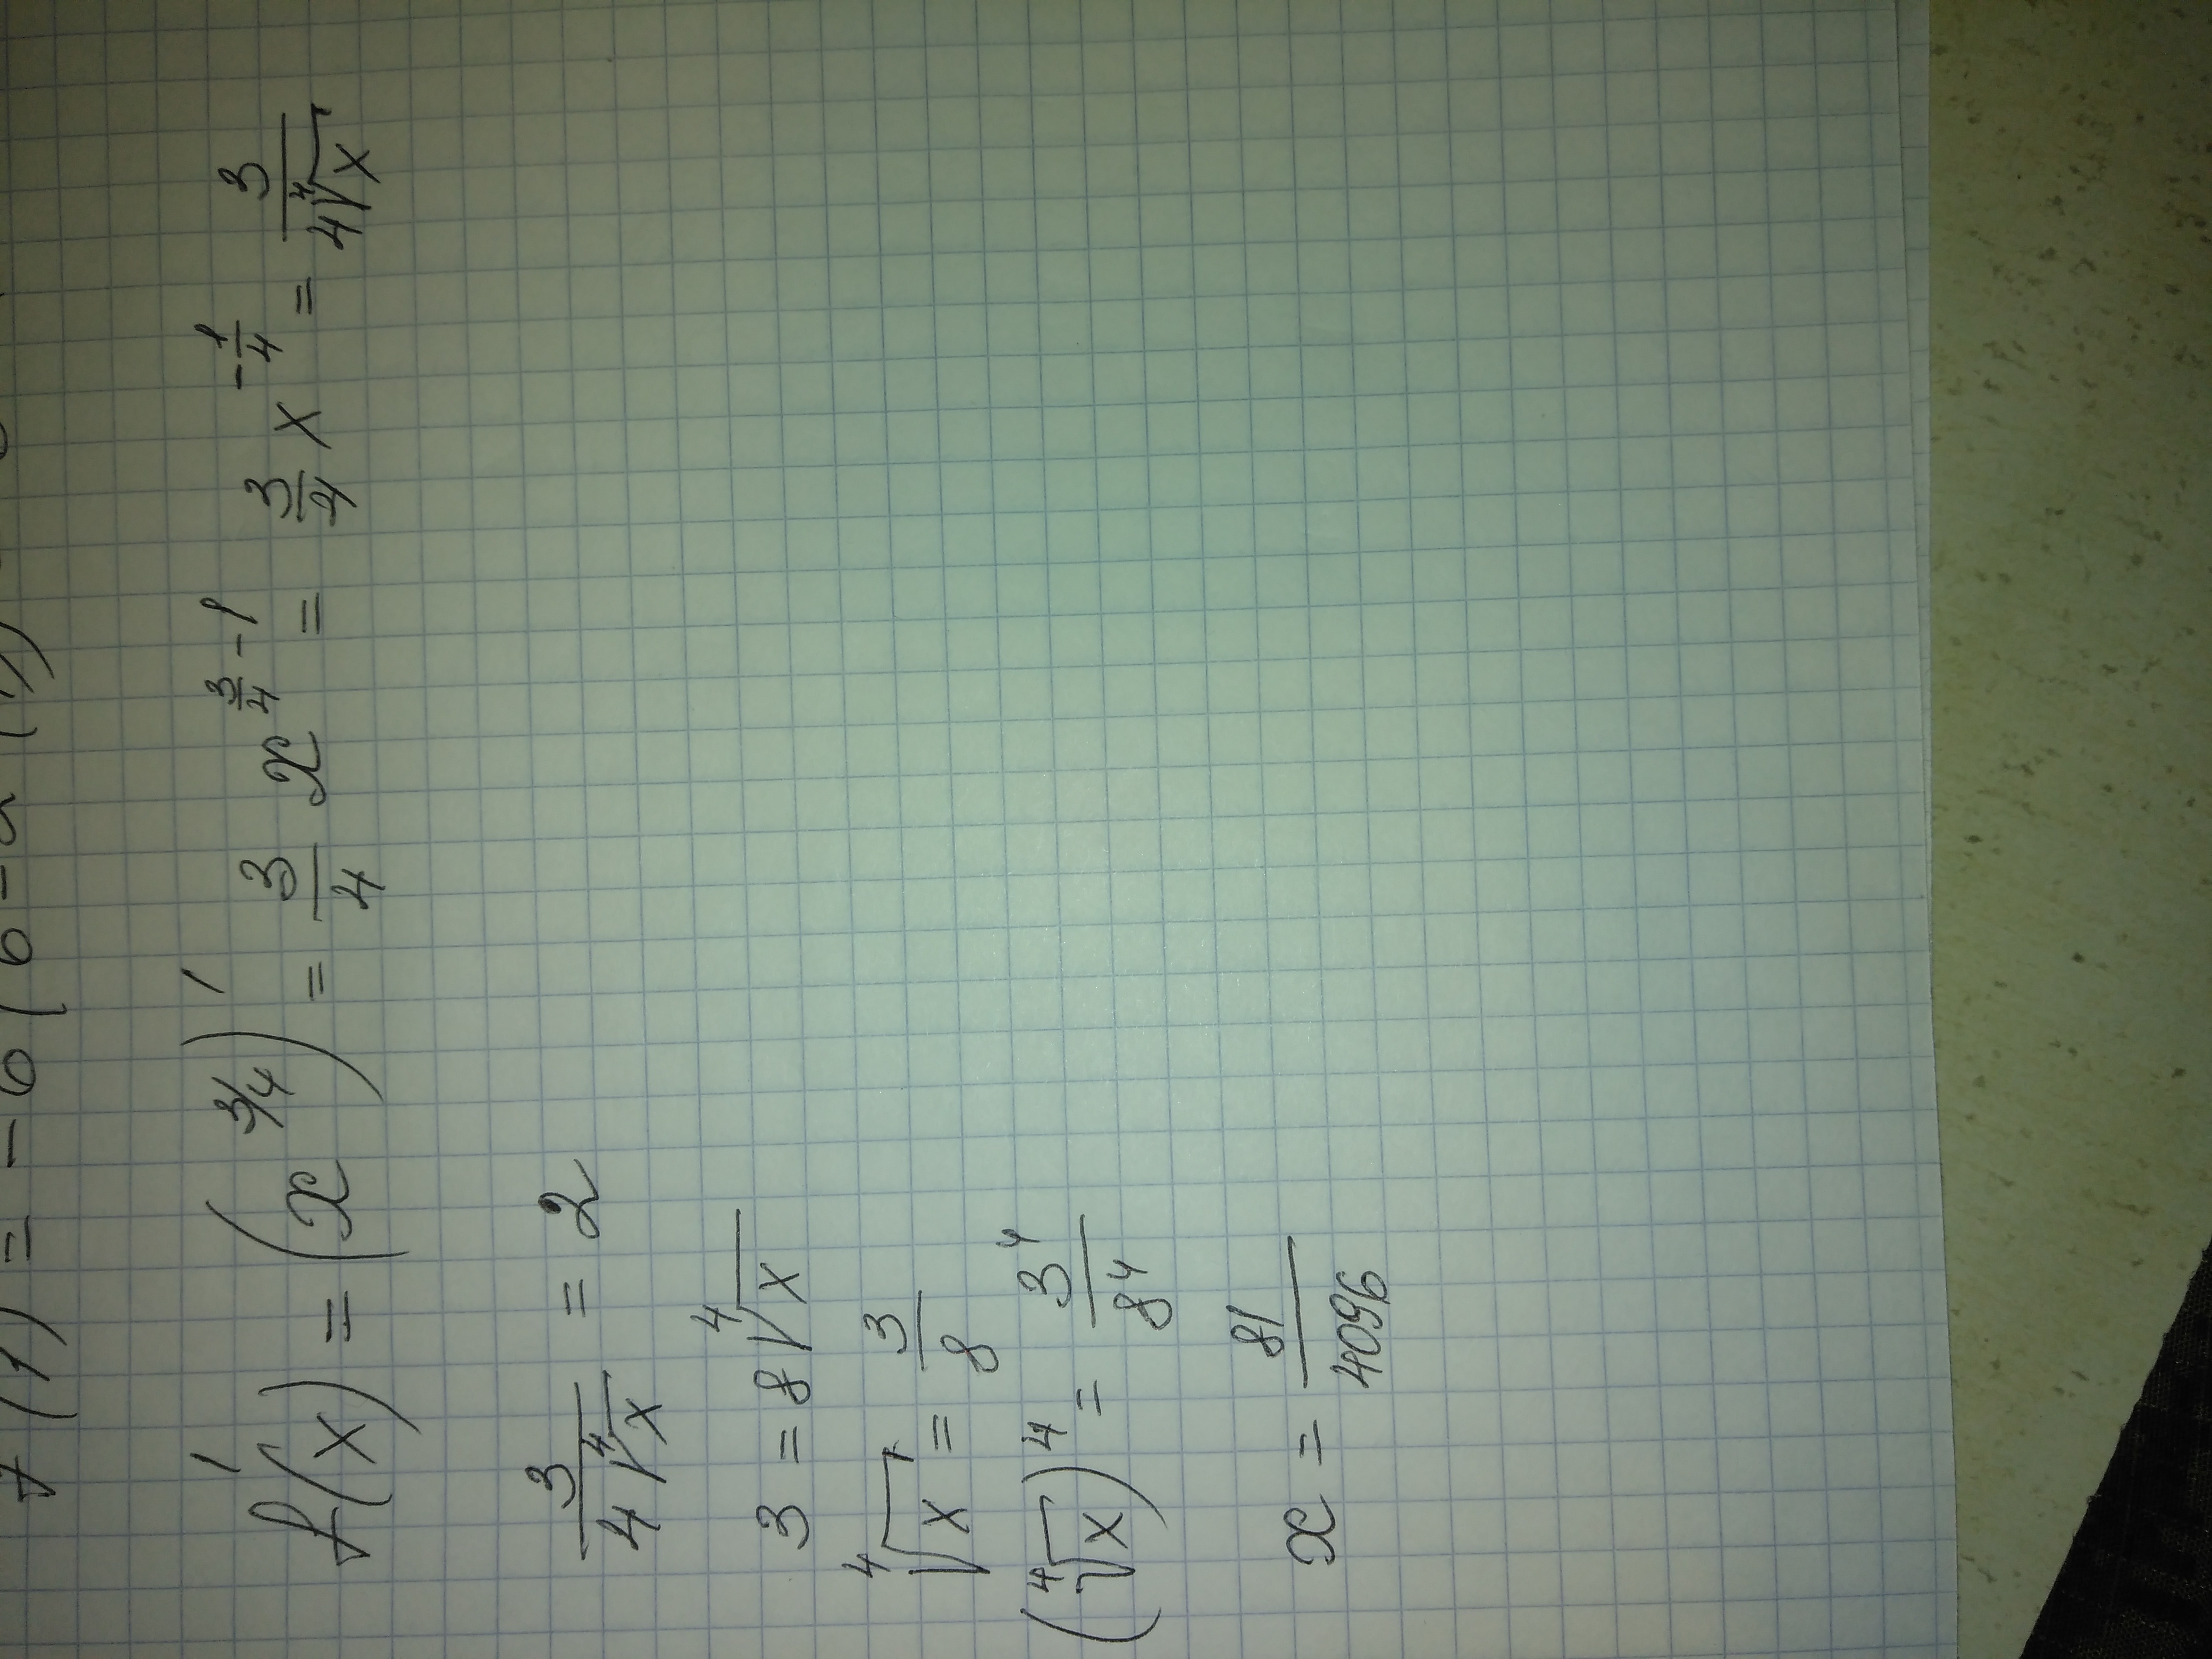 f'(x) = (x^{3/4})' = \frac{3}{4} x^{\frac{3}{4}-1} = \frac{3}{4} x^{-\frac{1}{4}} = \frac{3}{4\sqrt[4]{x}}
\frac{3}{4\sqrt[4]{x}} = 2
3 = 8\sqrt[4]{x}
\sqrt[4]{x} = \frac{3}{8}
(\sqrt[4]{x})^4 = \frac{3^4}{8^4}
x = \frac{81}{4096}